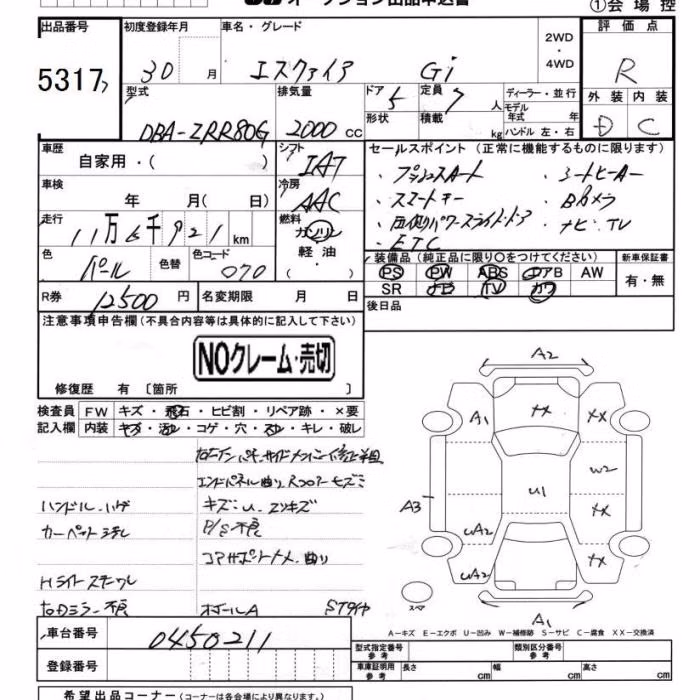 オークション出品申込書
①会場控
出品番号 初度登録年月 車名・グレード 2WD・4WD 評価点
5317 30 月 エスクァイア Gi R
型式 排気量 ドア 定員 ディーラー・並行 外装 内装
DBA-ZRR80G 2000 cc 5 7 人 モデル年式 年式 D C
形状 積載 kg ハンドル 左・右
車歴 シフト セールスポイント (正常に機能するものに限ります)
自家用・( ) IAT ・プッシュスタート ・シートヒーター
車検 冷房 ・スマートキー ・Bカメラ
年 月( 日) AAC ・両側パワースライドドア ・ナビ・TV
走行 燃料 ・ETC
11万6千921 km ガソリン
軽油・( )
色 パール 色替 色コード 070
装備品 (純正品に限り○をつけてください) 新車保証書
PS PW ABS エアB AW 有・無
SR ナビ TV カワ
R券 12500 円 名変期限 月 日
後日品
注意事項申告欄(不具合内容等は具体的に記入して下さい)
NOクレーム・売切
修復歴 有 〔箇所 〕
検査員 FW キズ・飛石・ヒビ割・リペア跡・×要
記入欄 内装 キズ・汚れ・コゲ・穴・スレ・キレ・破レ
エンドパネル曲り
ハンドル ハゲ キズ・U・エクボ
カーペット P/S不良
コアサポートメ、曲り
Hライトステー
右Dミラー不良
A2
A1 XX XX
W2
A3 U1 XX
UA2
UA2 XX
スペア A1
A-キズ E-エクボ U-凹み W-補修跡 S-サビ C-腐食 XX-交換済
車台番号 0450211
型式指定番号 参考 類別区分番号 参考
登録番号 車庫証明用 参考 長さ cm 幅 cm 高さ cm
希望出品コーナー (コーナーは各会場により異なります。)